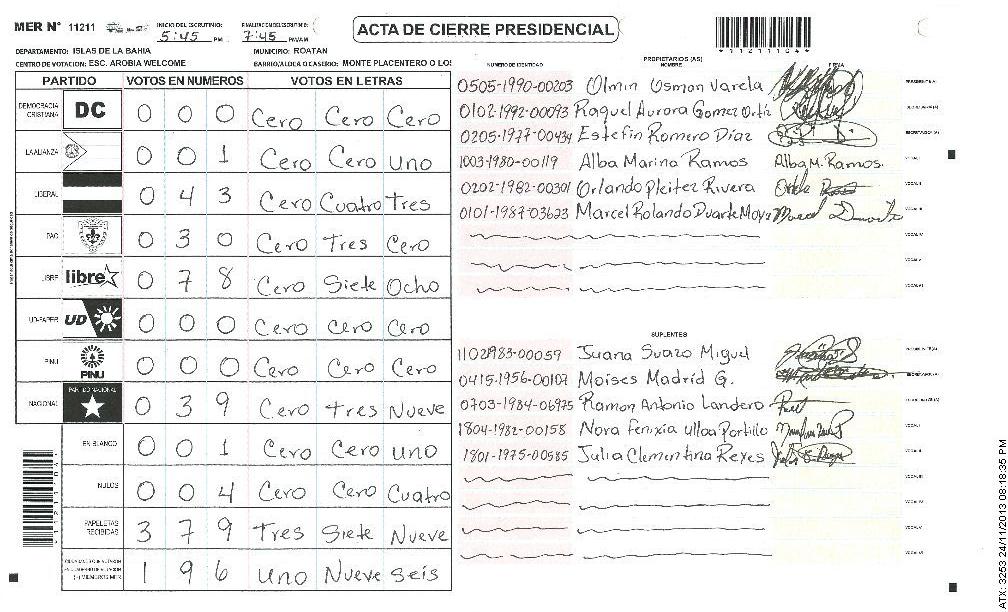 MER N° 11211 INICIO DEL ESCRUTINIO: 5:45 PM FINALIZACION DEL ESCRUTINIO: 7:45 PM/AM
ACTA DE CIERRE PRESIDENCIAL
DEPARTAMENTO: ISLAS DE LA BAHIA MUNICIPIO: ROATAN
CENTRO DE VOTACION: ESC. AROBIA WELCOME BARRIO/ALDEA O CASERIO: MONTE PLACENTERO O LOS
PARTIDO VOTOS EN NUMEROS VOTOS EN LETRAS
DEMOCRACIA CRISTIANA DC 0 0 0 Cero Cero Cero
LA ALIANZA 0 0 1 Cero Cero Uno
LIBERAL 0 4 3 Cero Cuatro Tres
PAC 0 3 0 Cero Tres Cero
LIBRE libre 0 7 8 Cero Siete Ocho
UD-FAPER UD 0 0 0 Cero Cero Cero
PINU PINU 0 0 0 Cero Cero Cero
NACIONAL PARTIDO NACIONAL 0 3 9 Cero Tres Nueve
EN BLANCO 0 0 1 Cero Cero Uno
NULOS 0 0 4 Cero Cero Cuatro
PAPELETAS RECIBIDAS 3 7 9 Tres Siete Nueve
(+) MIEMBROS MER 1 9 6 Uno Nueve Seis
PROPIETARIOS (AS)
NUMERO DE IDENTIDAD NOMBRE FIRMA
0505-1990-00203 Olmin Osmon Varela PRESIDENTE(A)
0102-1992-00093 Raquel Aurora Gomez Ortíz SECRETARIO(A)
0205-1977-00434 Estefin Romero Díaz ESCRUTADOR(A)
1003-1980-00119 Alba Marina Ramos Alba M. Ramos. VOCAL I
0202-1982-00301 Orlando Pleitez Rivera VOCAL II
0101-1987-03623 Marcel Rolando Duarte Moya VOCAL III
VOCAL IV
VOCAL V
VOCAL VI
SUPLENTES
1102-1983-00059 Juana Suazo Miguel PRESIDENTE(A)
0415-1956-00107 Moises Madrid G. SECRETARIO(A)
0703-1984-06975 Ramon Antonio Landero ESCRUTADOR(A)
1804-1982-00158 Nora Fenixia Ulloa Portillo VOCAL I
1801-1975-00585 Julia Clementina Reyes VOCAL II
VOCAL III
VOCAL IV
VOCAL V
VOCAL VI
ATX: 3253 24/11/2013 08:18:35 PM